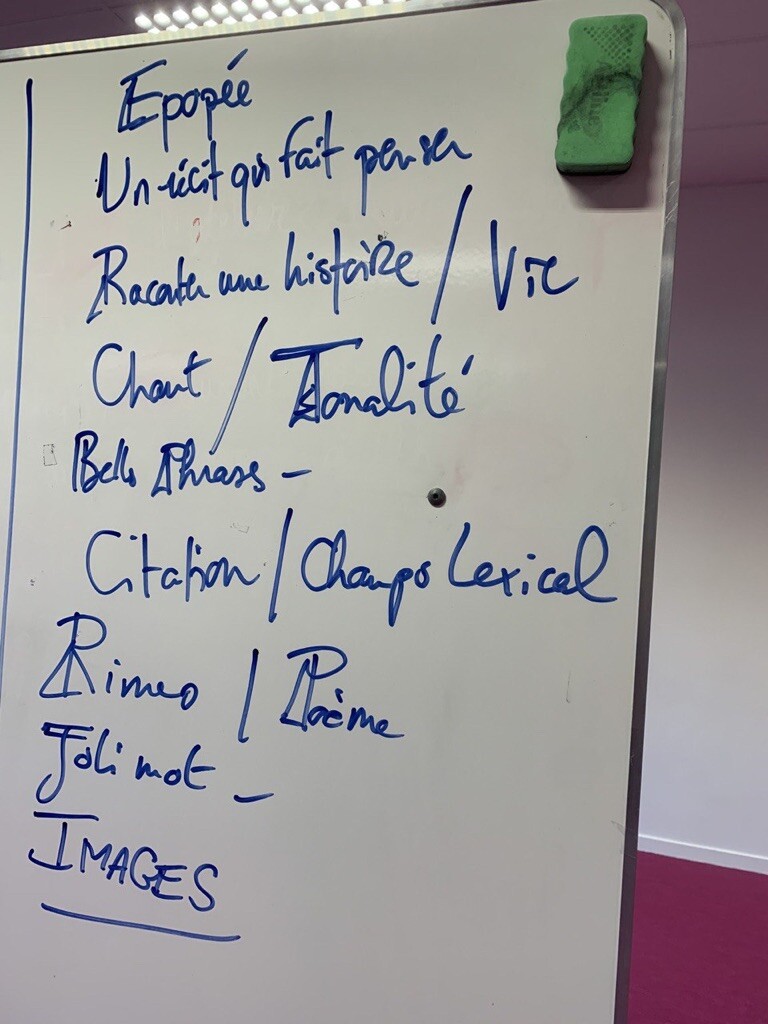 Epopée
Un récit qui fait penser
Raconter une histoire / Vie
Chant / Tonalité
Belles Phrases -
Citation / Champs Lexical
Rimes / Poème
Joli mot -
IMAGES